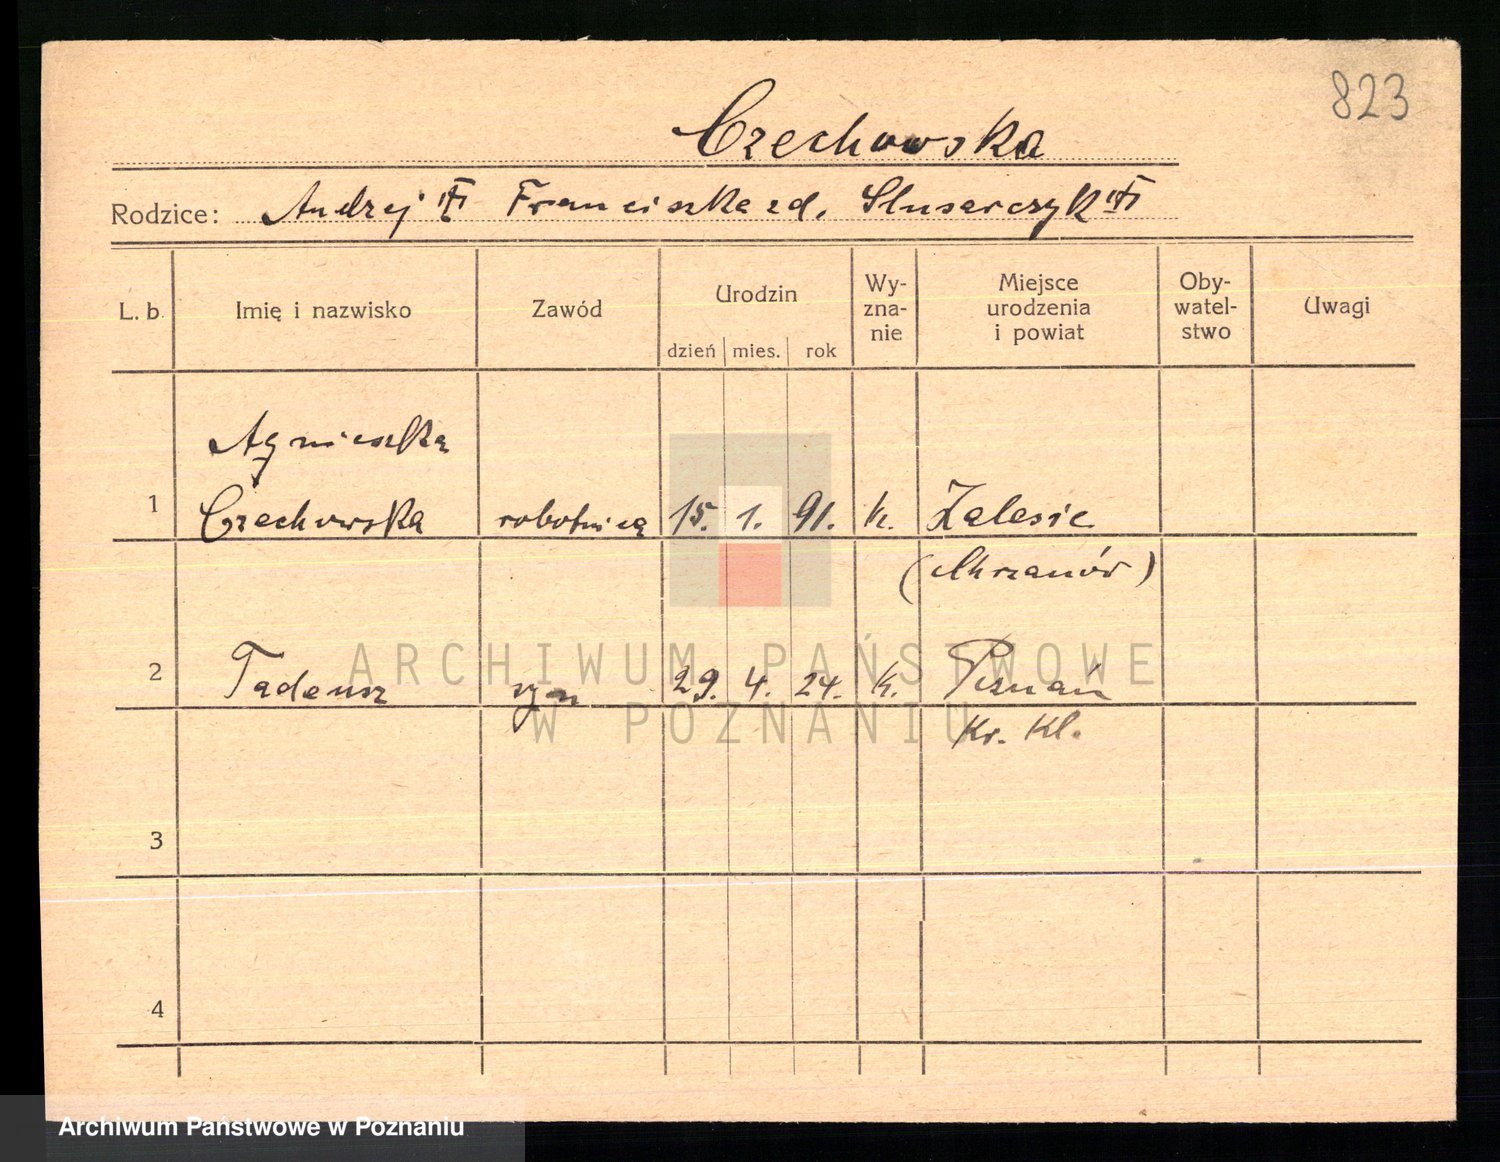 823
Czechowska
Rodzice: Andrzej Franciszka zd. Slusarczyk
L. b. Imię i nazwisko Zawód Urodzin Wy-zna-nie Miejsce urodzenia i powiat Oby-watel-stwo Uwagi
dzień mies. rok
Agnieszka
1 Czechowska robotnica 15. 1. 91. k. Zalesie
(Chrzanów)
2 Tadeusz syn 29. 4. 24. k. Poznań
Kr. Kl.
3
4
ARCHIWUM PAŃSTWOWE
W POZNANIU
Archiwum Państwowe w Poznaniu